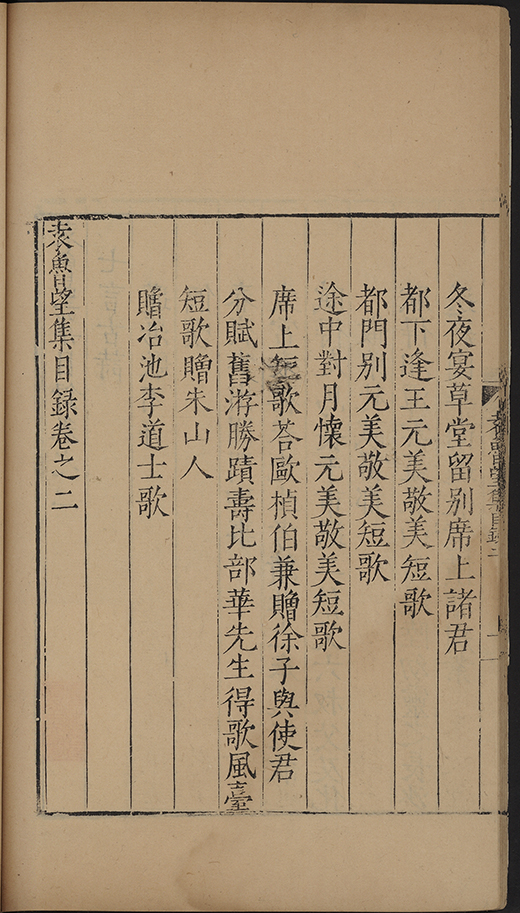 冬夜宴草堂留别席上諸君
都下逢王元美敬美短歌
都門别元美敬美短歌
途中對月懷元美敬美短歌
席上短歌荅歐楨伯兼贈徐子與使君
分賦舊游勝蹟壽比部華先生得歌風臺
短歌贈朱山人
贈冶池李道士歌
袁魯望集目録卷之二